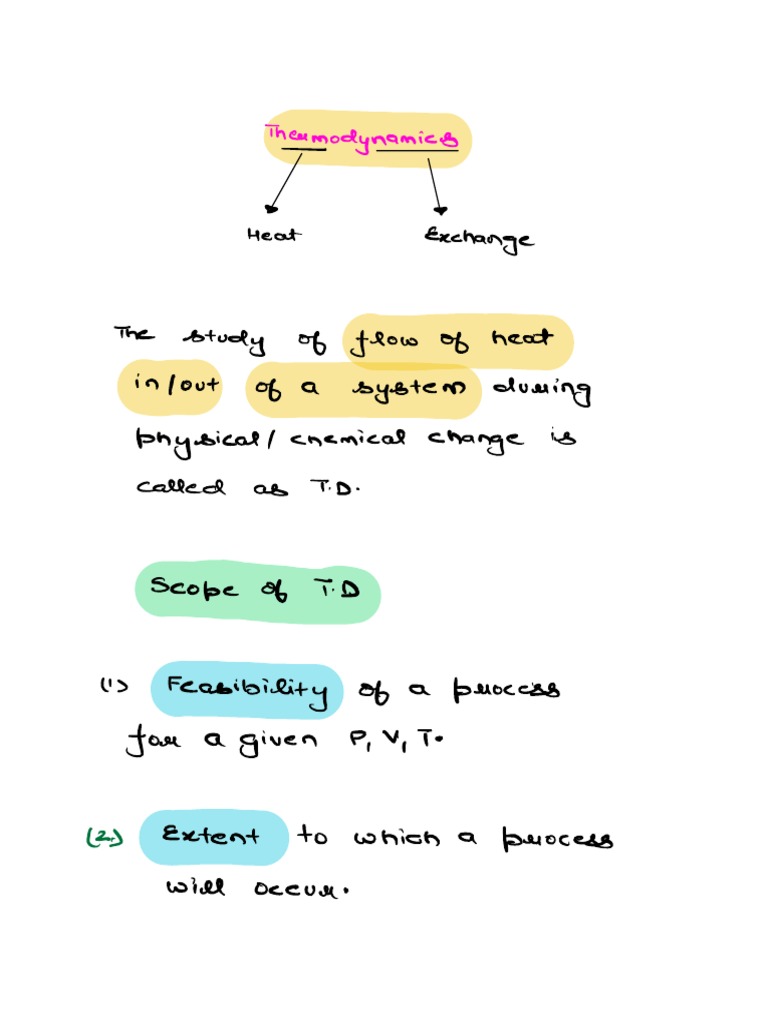 Thermodynamics
Heat Exchange
The study of flow of heat
in/out of a system during
physical/chemical change is
called as T.D.
Scope of T.D
(1) Feasibility of a process
for a given P, V, T.
(2) Extent to which a process
will occur.